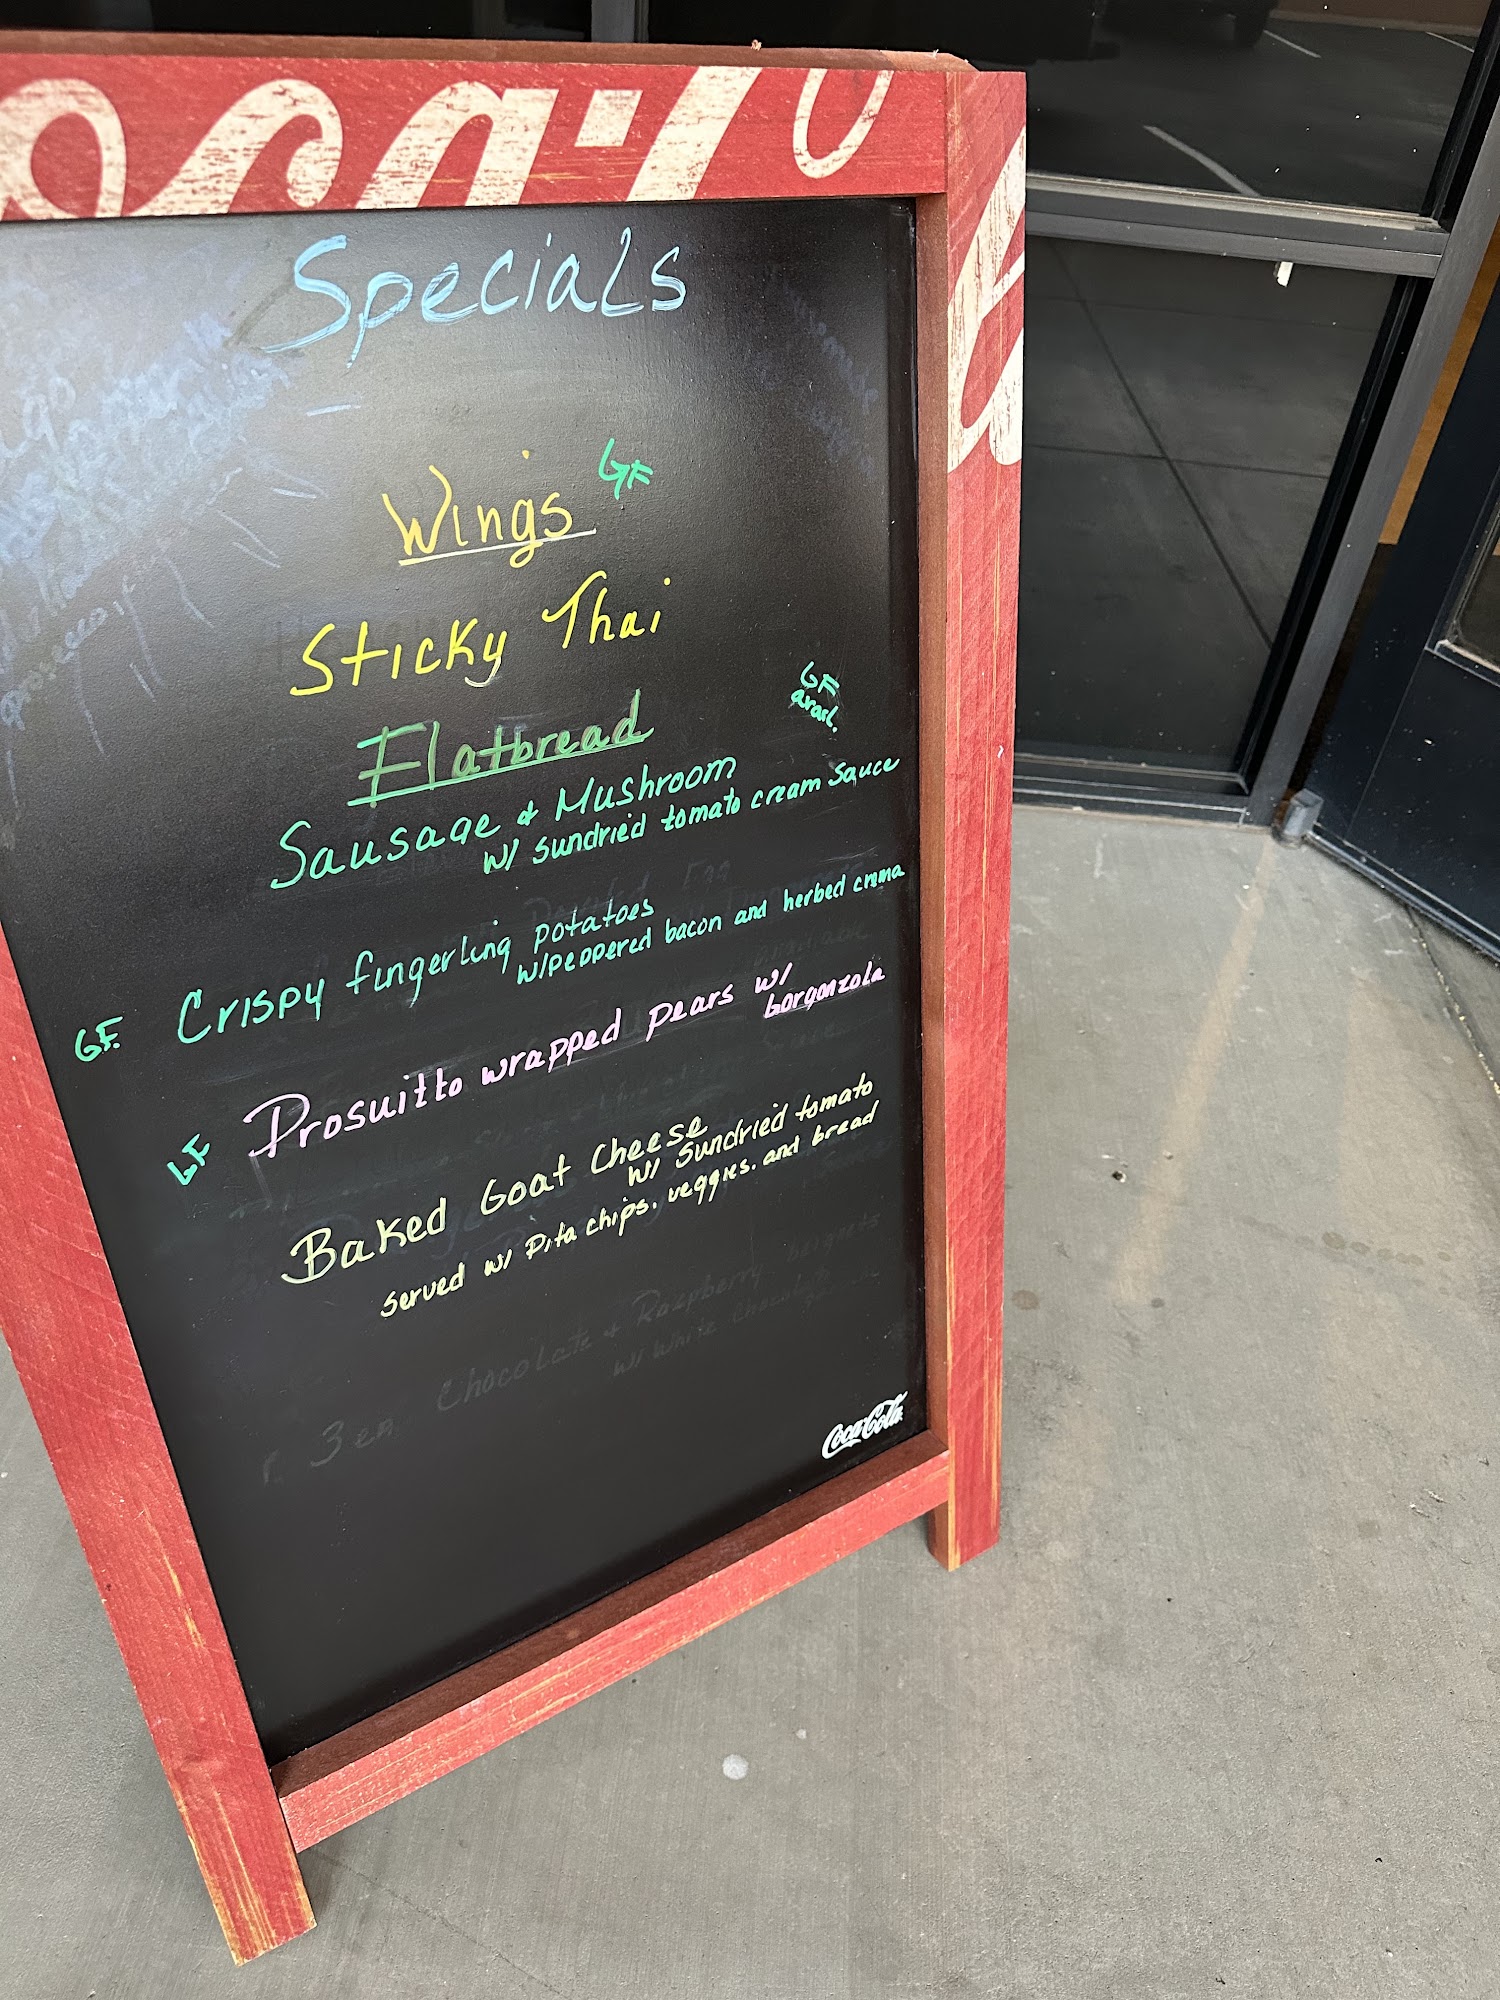 Specials
Wings GF
Sticky Thai
Flatbread
GF
avail.
Sausage & Mushroom
w/ sundried tomato cream sauce
GF. Crispy fingerling potatoes
w/peppered bacon and herbed crema
GF Prosuitto wrapped pears w/
Gorgonzola
Baked Goat Cheese
w/ Sundried tomato
served w/ Pita chips. veggies. and bread
3 ea. Chocolate & Raspberry
w/ White Chocolate
Coca-Cola